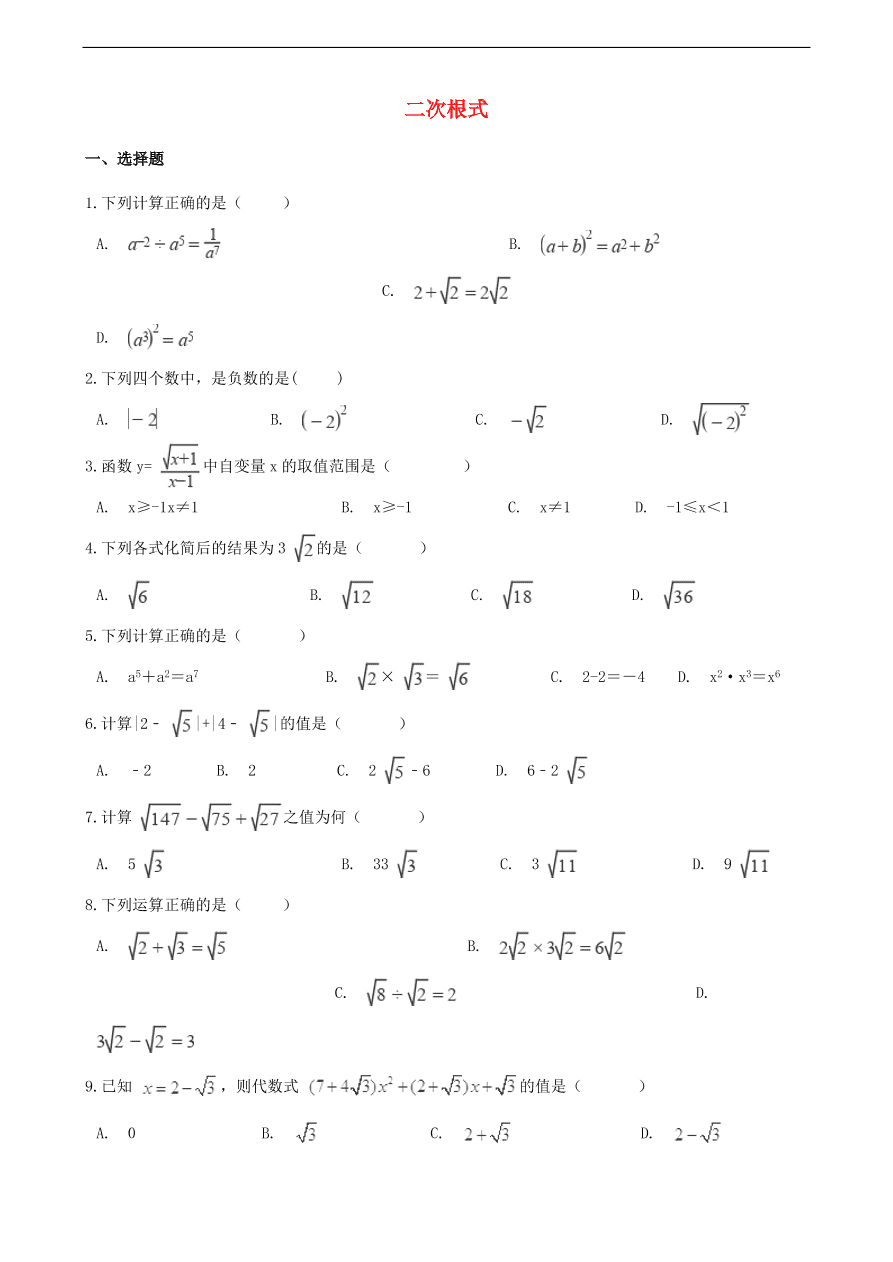 二次根式
一、选择题
1.下列计算正确的是（    ）
A. a⁻²÷a⁵=1/a⁷ B. (a+b)²=a²+b²
C. 2+√2=2√2
D. (a³)²=a⁵
2.下列四个数中，是负数的是(    )
A. |−2| B. (−2)² C. −√2 D. √(−2)²
3.函数 y= √(x+1)/(x−1) 中自变量 x 的取值范围是（    ）
A. x≥-1x≠1 B. x≥-1 C. x≠1 D. -1≤x＜1
4.下列各式化简后的结果为 3 √2 的是（    ）
A. √6 B. √12 C. √18 D. √36
5.下列计算正确的是（    ）
A. a⁵＋a²＝a⁷ B. √2 × √3 = √6 C. 2-2＝－4 D. x²·x³＝x⁶
6.计算|2﹣ √5 |+|4﹣ √5 |的值是（    ）
A. ﹣2 B. 2 C. 2 √5 ﹣6 D. 6﹣2 √5
7.计算 √147−√75+√27 之值为何（    ）
A. 5 √3 B. 33 √3 C. 3 √11 D. 9 √11
8.下列运算正确的是（    ）
A. √2+√3=√5 B. 2√2×3√2=6√2
C. √8÷√2=2 D.
3√2−√2=3
9.已知 x=2−√3 ，则代数式 (7+4√3)x²+(2+√3)x+√3 的值是（    ）
A. 0 B. √3 C. 2+√3 D. 2−√3